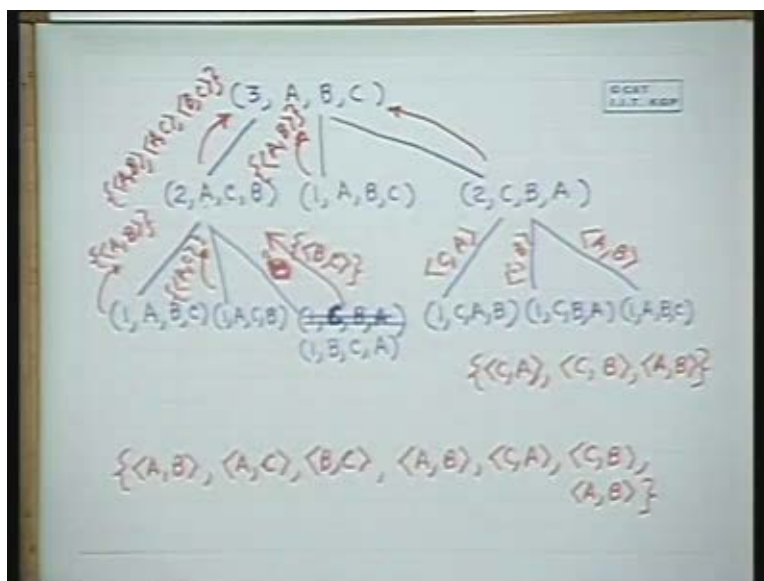 © CET
I.I.T. KGP
(3, A, B, C)
{⟨A,B⟩, ⟨A,C⟩, ⟨B,C⟩}
{⟨A,B⟩}
(2, A, C, B) (1, A, B, C) (2, C, B, A)
{⟨A,B⟩}
{⟨A,C⟩}
{⟨B,C⟩}
⟨C,A⟩
⟨A,B⟩
(1, A, B, C) (1, A, C, B) (1, C, B, A) (1, C, A, B) (1, C, B, A) (1, A, B, C)
(1, B, C, A)
{⟨C,A⟩, ⟨C,B⟩, ⟨A,B⟩}
{⟨A,B⟩, ⟨A,C⟩, ⟨B,C⟩, ⟨A,B⟩, ⟨C,A⟩, ⟨C,B⟩,
⟨A,B⟩}